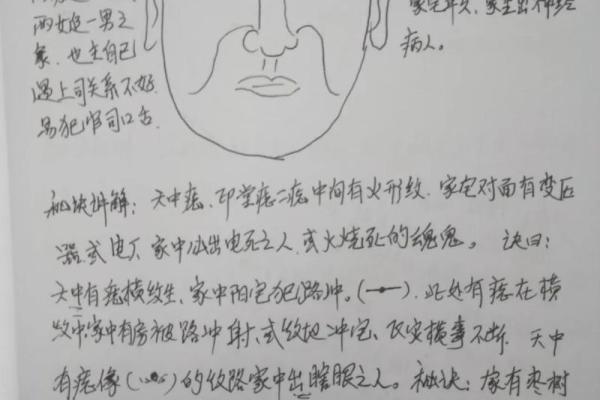 两女追一男之
象．也主自己
遇上司关系不好
易犯官司口舌．
家宅年久．家里出神经
病人。
秘诀讲解：天中痣．印堂痣二痣中间有火形纹．家宅对面有变压
器或电厂家中必出电死之人．或火烧死的魂鬼。诀曰：
天中有痣横纹生．家中阳宅犯路冲。（—•—）．此处有痣在横
纹中．家中有房被路冲射．或纹地冲宅．凶灾横事不断．天中
有痣像（）的纹路家中出瞎眼之人。秘诀：家有枣树